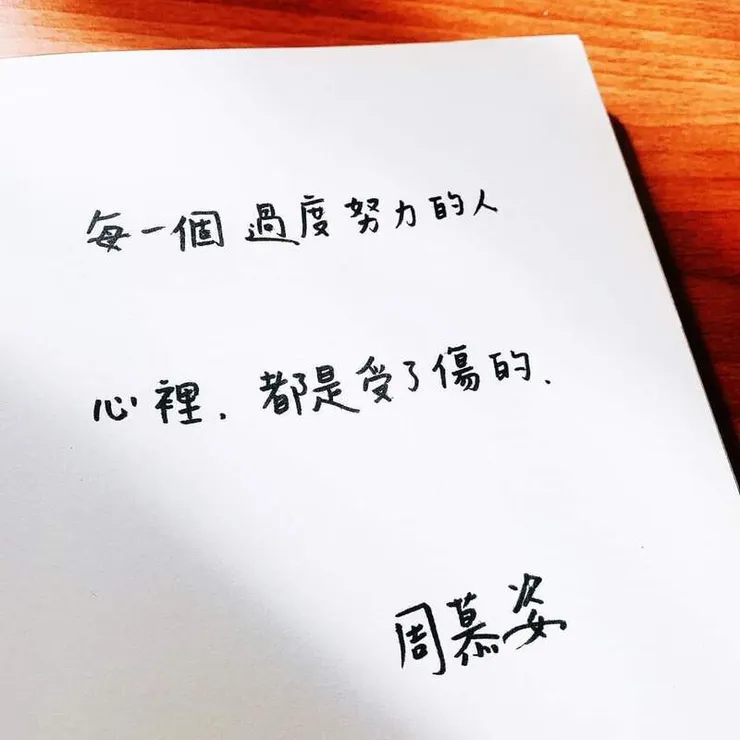 每一個過度努力的人
心裡.都是受了傷的.
周慕姿